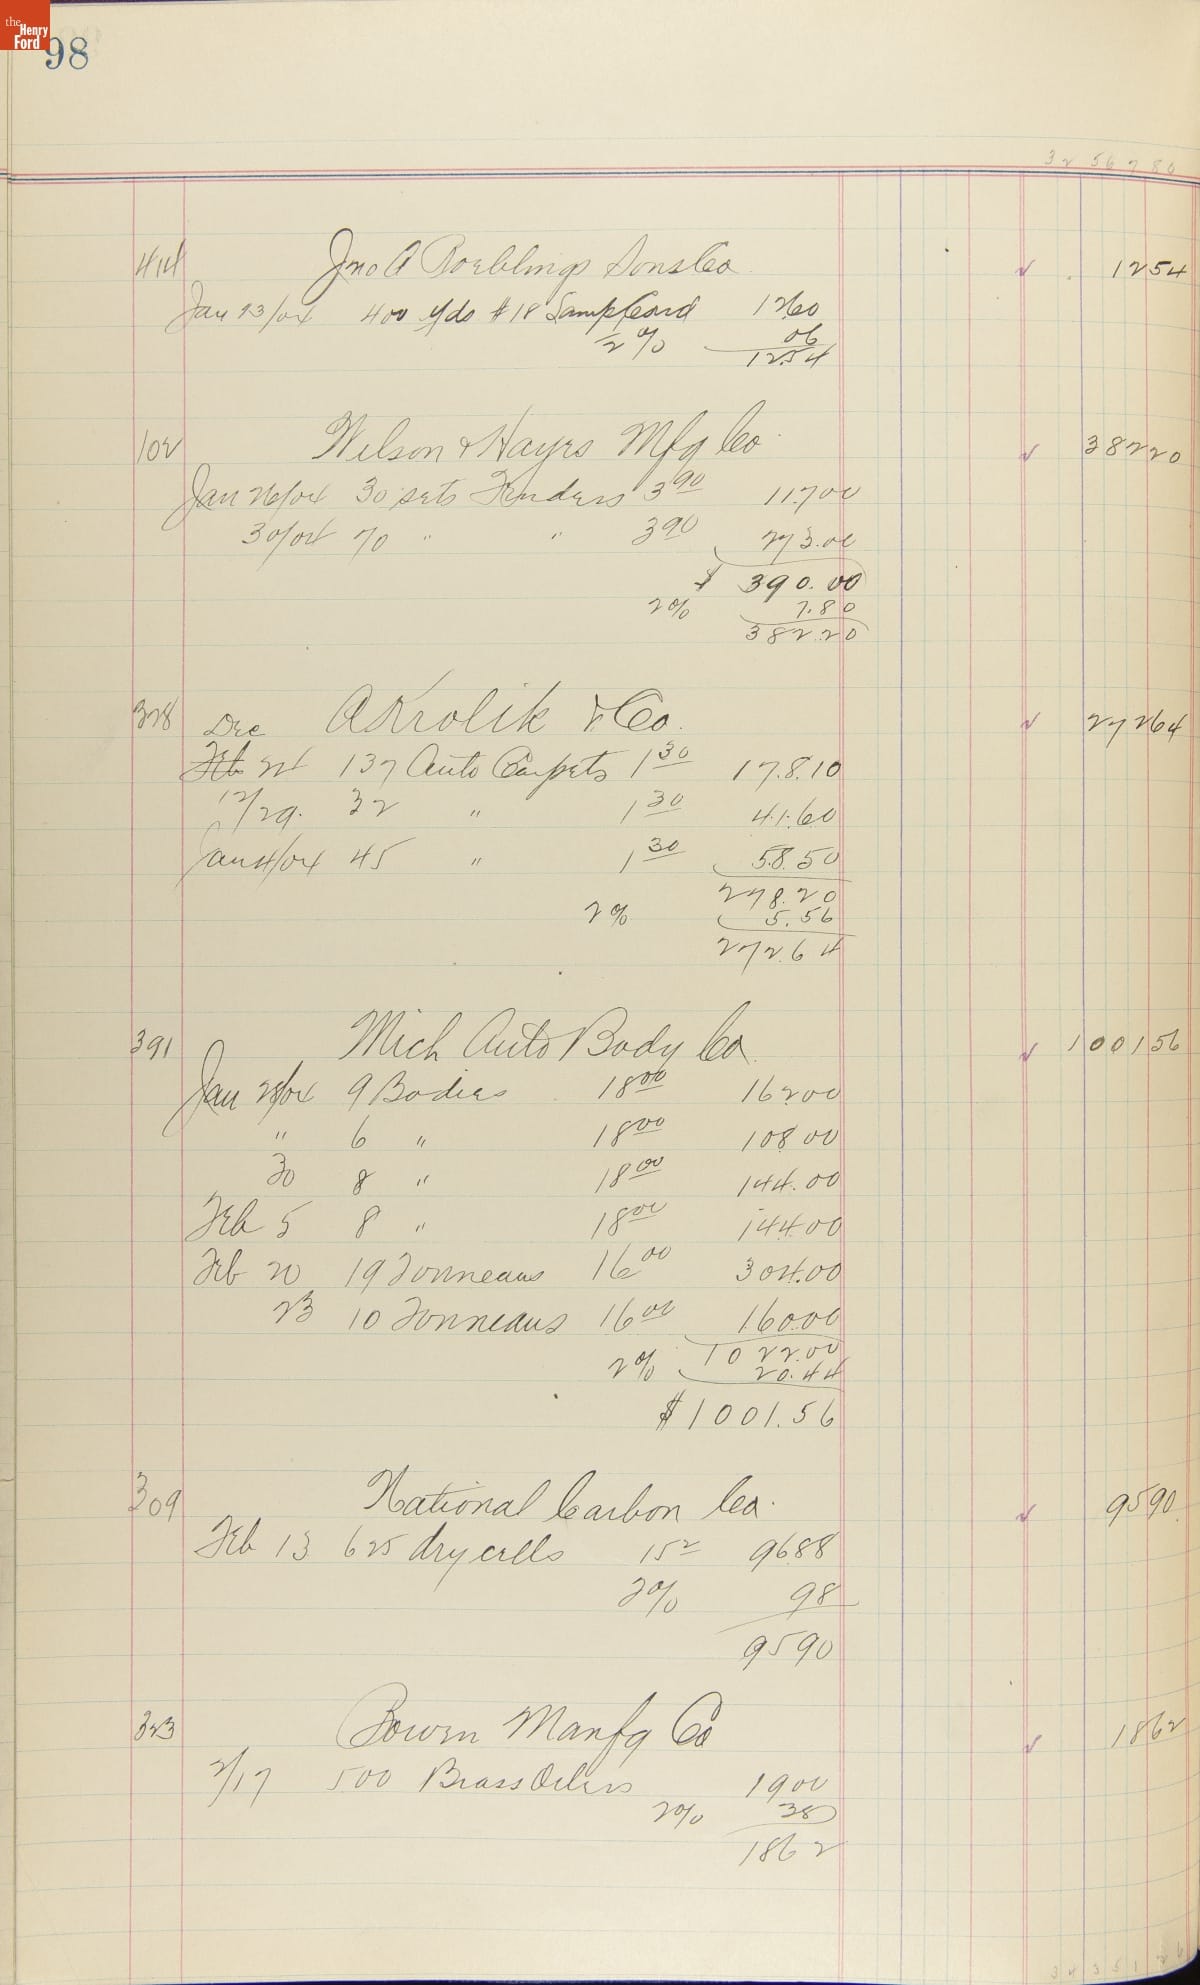 the Henry Ford
98
32 567 80
414 Jno A Roeblings Sons Co ✓ 1254
Jan 23/04 400 yds #18 Lamp Cord 1260
1/2 % 06
12.54
102 Wilson & Hayes Mfg Co ✓ 38220
Jan 26/04 30 sets Fenders 3 90 117 00
30/04 70 " " 3 90 273.00
$ 390.00
2% 7.80
382.20
328 Dec A Krolik & Co. ✓ 27264
Feb 24 137 Auto Carpets 1 30 178.10
12/29. 32 " 1 30 41.60
Jan 4/04 45 " 1 30 58.50
278.20
2% 5.56
272.64
391 Mich Auto Body Co ✓ 100156
Jan 28/04 9 Bodies 18 00 162 00
" 6 " 18 00 108 00
30 8 " 18 00 144.00
Feb 5 8 " 18 00 144 00
Feb 20 19 Tonneaus 16 00 304.00
23 10 Tonneaus 16 00 160.00
1022.00
2% 20.44
$1001.56
309 National Carbon Co. ✓ 9590
Feb 13 625 dry cells 15 2 9688
2% 98
9590
323 Bowen Manfg Co ✓ 1862
2/17 500 Brass Oilers 1900
2% 38
1862